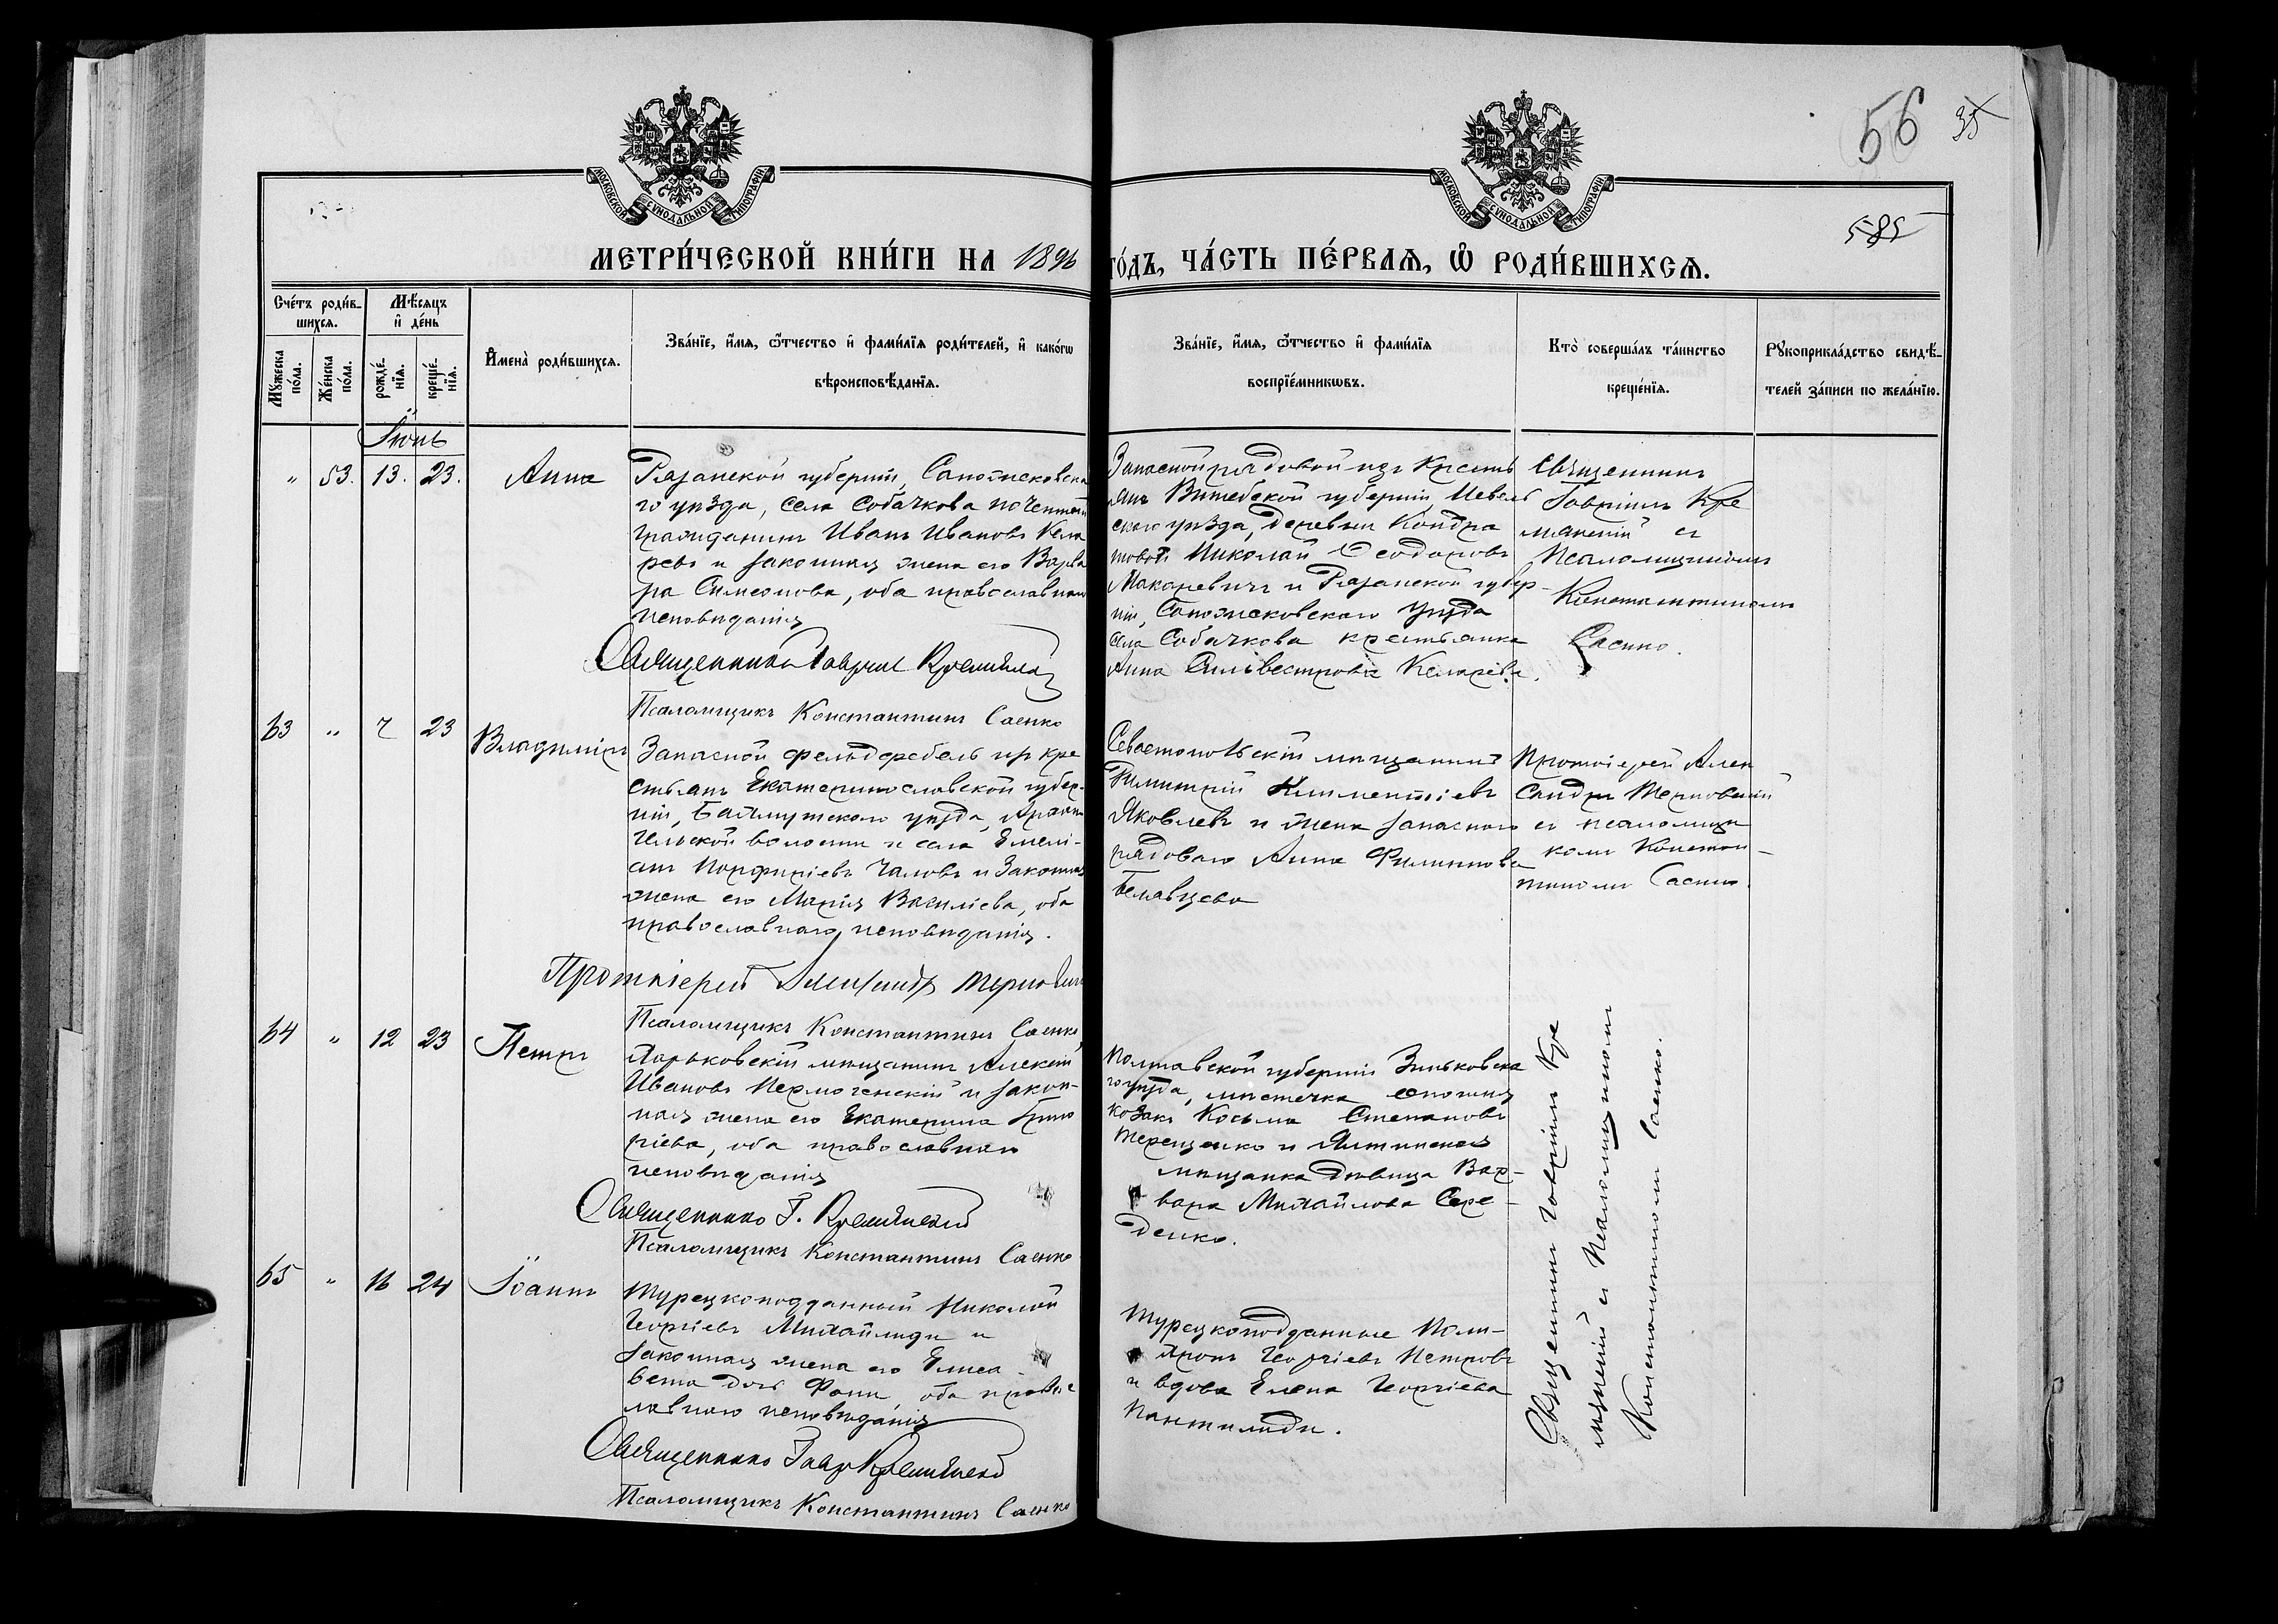 56 35
585
МОСКОВСКОЙ СѴНОДАЛЬНОЙ ТИПОГРАФІИ
МОСКОВСКОЙ СѴНОДАЛЬНОЙ ТИПОГРАФІИ
МЕТРИ́ЧЕСКОЙ КНИ́ГИ НА 1896
ГО́ДЪ, ЧА́СТЬ ПЕ́РВАЯ, Ѡ РОДИ́ВШИХСЯ.
Сче́тъ роди́в-
шихся.
Мꙋжеска
по́ла.
Же́нска
по́ла.
Мѣ́сяцъ
и де́нь
рожде́-
нїя.
креще́-
нїя.
И҆мена̀ роди́вшихся.
Зва́нїе, и҆́мя, ѻ҆́тчество и҆ фами́лїя роди́телей, и҆ како́гѡ
вѣроисповѣ́данїя.
Зва́нїе, и҆́мя, ѻ҆́тчество и҆ фами́лїя
воспрїе́мникѡвъ.
Кто̀ соверша́лъ та́инство
креще́нїя.
Рꙋкоприкла́дство свидѣ́-
телей за́писи по жела́нїю.
Іюнь
" 53. 13. 23. Анна
Рязанской губерніи, Сапожковска
го уѣзда, села Собачкова почетный
гражданинъ Иванъ Ивановъ Кела
ревъ и законная жена его Варва
ра Симеонова, оба православнаго
исповѣданія
Священникъ Гавріилъ Кремянскій
Псаломщикъ Константинъ Саенко
Запасной рядовой изъ кресть
янъ Витебской губерніи, Невель
скаго уѣзда, деревни Кондра
товой Николай Ѳеодоровъ
Макаревичъ и Рязанской губер-
ніи, Сапожковскаго уѣзда
села Собачкова крестьянка
Анна Сильвестрова Келарева.
Священникъ
Гавріилъ Кре
мянскій съ
Псаломщикомъ
Константиномъ
Саенко.
63 " 7 23 Владиміръ
Запасной фельдфебель изъ кре
стьянъ Екатеринославской губер-
ніи, Бахмутскаго уѣзда, Архан
гельской волости и села Емели-
анъ Порфиріевъ Чаловъ и законная
жена его Марія Василіева, оба
православнаго исповѣданія.
Протоіерей Александръ Терновскій
Псаломщикъ Константинъ Саенко
Севастопольскій мѣщанинъ
Димитрій Климентіевъ
Яковлевъ и жена запаснаго
рядоваго Анна Филиппова
Белавцева
Протоіерей Алек
сандръ Терновскій
съ псаломщи
комъ Констан-
тиномъ Саенко.
64 " 12 23 Петръ
Харьковскій мѣщанинъ Алексій
Ивановъ и закон-
ная жена его Екатерина Григо
ріева, оба православнаго
исповѣданія
Священникъ Г. Кремянскій
Псаломщикъ Константинъ Саенко
Полтавской губерніи Зиньковска
го уѣзда, мѣстечка
козакъ Косьма Степановъ
Терещенко и Ялтинская
мѣщанка дѣвица Вар-
вара Михайлова Сере-
денко.
Священникъ Гавріилъ Кре
мянскій съ Псаломщикомъ
Константиномъ Саенко.
65 " 16 24 Іоаннъ
Турецкоподданный Николай
Георгіевъ Михайлиди и
законная жена его Елиса
вета оба право
лавнаго исповѣданія
Священникъ Гавр. Кремянскій
Псаломщикъ Константинъ Саенко
Турецкоподданные Поли-
хронъ Георгіевъ Петровъ
и вдова Елена Георгіева
Пантилиди.